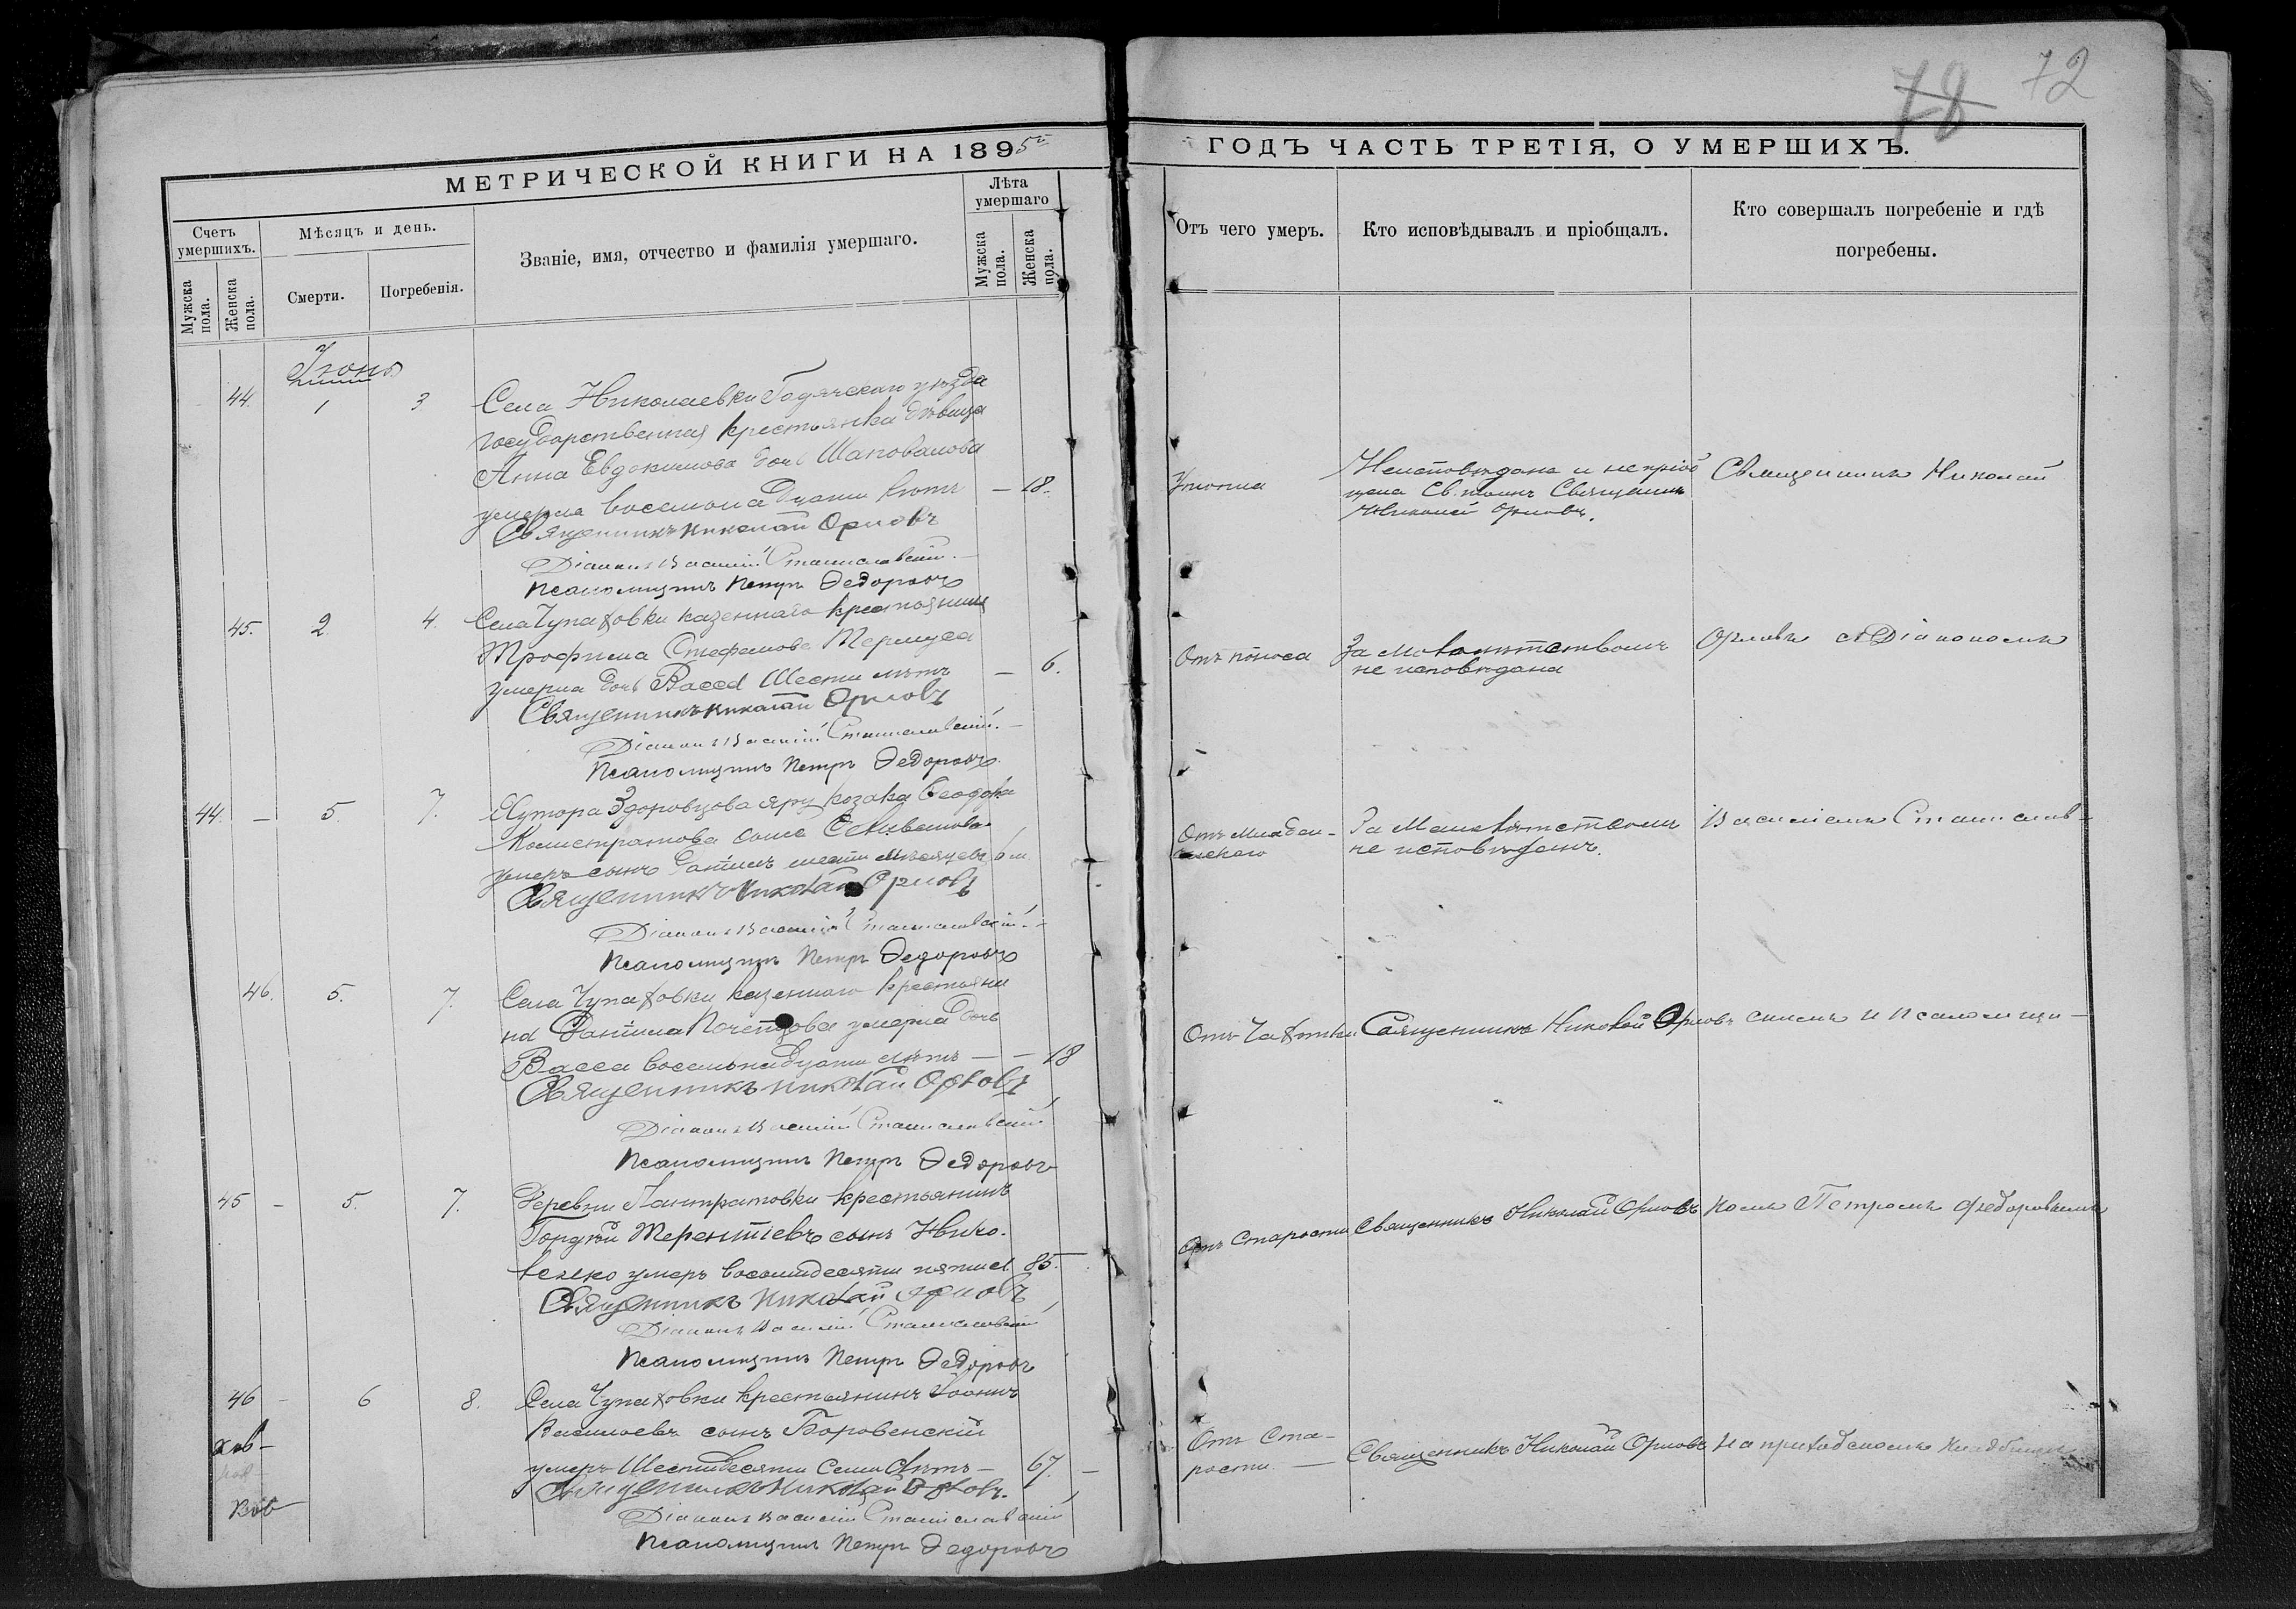 72
МЕТРИЧЕСКОЙ КНИГИ НА 1895й
ГОДЪ ЧАСТЬ ТРЕТІЯ, О УМЕРШИХЪ.
Счетъ умершихъ.
Мужска пола.
Женска пола.
Мѣсяцъ и день.
Смерти.
Погребенія.
Званіе, имя, отчество и фамилія умершаго.
Лѣта умершаго
Мужска пола.
Женска пола.
Отъ чего умеръ.
Кто исповѣдывалъ и пріобщалъ.
Кто совершалъ погребеніе и гдѣ
погребены.
Іюнь
44. 1 3 Села Николаевки Гадячскаго уѣзда
государственная крестьянка дѣвица
Анна Евдокимова дочь Шаповалова
умерла восемнадцати лѣтъ — 18.
Священникъ Николай Орловъ
Діаконъ Василій Станиславскій
Псаломщикъ Петръ Федоровъ
Утопла
Неисповѣдана и не пріоб
щена Св. таинъ Священник
Николай Орловъ.
Священникъ Николай
45. 2. 4. Села Чупаховки казеннаго крестьянина
Трофима Стефанова
умерла дочь Васса Шести лѣтъ — 6.
Священникъ Николай Орловъ
Діаконъ Василій Станиславскій.
Псаломщикъ Петръ Федоровъ
Отъ поноса
За малолѣтствомъ
не исповѣдана
Орловъ съ Діакономъ
44. — 5. 7. Хутора Здоровцова яру козака
Калистратова сына Селиванова
умеръ сынъ Даніилъ шести мѣсяцевъ 6 м
Священникъ Николай Орловъ
Діаконъ Василій Станиславскій.
Псаломщикъ Петръ Федоровъ
Отъ младен-
ческаго
За Малолѣтствомъ
не исповѣданъ.
Василіемъ Станислав-
46. 5. 7. Села Чупаховки казеннаго крестьяни
на Даніила умерла дочь
Васса восемнадцати лѣтъ — — 18
Священникъ Николай Орловъ
Діаконъ Василій Станиславскій
Псаломщикъ Петръ Федоровъ
Отъ Чахотки
Священникъ Николай Орловъ
скимъ и псаломщи-
45 — 5. 7. Деревни крестьянинъ
Гордѣй Терентіевъ сынъ
умеръ восьмидесяти пяти л. 85.
Священникъ Николай Орловъ
Діаконъ Василій Станиславскій
Псаломщикъ Петръ Федоровъ
Отъ Старости
Священникъ Николай Орловъ
комъ Петромъ Федоровымъ
46 — 6 8. Села Чупаховки крестьянинъ Іоаннъ
Васильевъ сынъ Боровенскій
умеръ Шестидесяти Семи лѣтъ — 67. —
Священникъ Николай Орловъ.
Діаконъ Василій Станиславскій
Псаломщикъ Петръ Федоровъ
Отъ Ста-
рости —
Священникъ Николай Орловъ
На приходскомъ кладбищѣ